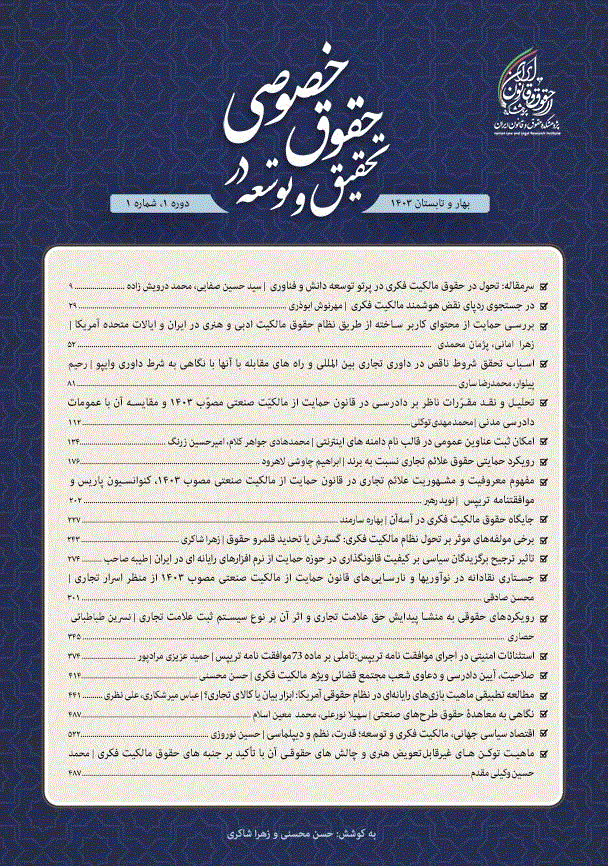 پژوهشکده حقوق و قانون ایران
Iranian Law and Legal Research Institute
تحقیق و توسعه در
حقوق خصوصی
بهار و تابستان ۱۴۰۳
دوره ۱، شماره ۱
سرمقاله: تحول در حقوق مالکیت فکری در پرتو توسعه دانش و فناوری | سید حسین صفایی، محمد درویش زاده ... ۹
در جستجوی ردپای نقض هوشمند مالکیت فکری | مهرنوش ابوذری ... ۲۹
بررسی حمایت از محتوای کاربر ساخته از طریق نظام حقوق مالکیت ادبی و هنری در ایران و ایالات متحده آمریکا |
زهرا امانی، پژمان محمدی ... ۵۲
اسباب تحقق شروط ناقص در داوری تجاری بین المللی و راه های مقابله با آنها با نگاهی به شرط داوری وایپو | رحیم
پیلوار، محمدرضا ساری ... ۸۱
تحلیل و نقد مقررات ناظر بر دادرسی در قانون حمایت از مالکیّت صنعتی مصوّب ۱۴۰۳ و مقایسه آن با عمومات
دادرسی مدنی | محمد مهدی توکلی ... ۱۱۲
امکان ثبت عناوین عمومی در قالب نام دامنه های اینترنتی | محمدهادی جواهر کلام، امیرحسین زرنگ ... ۱۳۴
رویکرد حمایتی حقوق علائم تجاری نسبت به برند | ابراهیم چاوشی لاهرود ... ۱۷۶
مفهوم معروفیت و مشهوریت علائم تجاری در قانون حمایت از مالکیت صنعتی مصوب ۱۴۰۳، کنوانسیون پاریس و
موافقتنامه تریپس | نوید رهبر ... ۲۰۲
جایگاه حقوق مالکیت فکری در آسه‌آن | بهاره سازمند ... ۲۲۷
برخی مولفه‌های موثر بر تحول نظام مالکیت فکری: گسترش یا تحدید قلمرو حقوق | زهرا شاکری ... ۲۴۳
تاثیر ترجیح برگزیدگان سیاسی بر کیفیت قانونگذاری در حوزه حمایت از نرم افزارهای رایانه ای در ایران | طیبه صاحب ... ۲۷۴
جستاری نقادانه در نوآوریها و نارسایی‌های قانون حمایت از مالکیت صنعتی مصوب ۱۴۰۳ از منظر اسرار تجاری |
محسن صادقی ... ۳۰۱
رویکردهای حقوقی به منشا پیدایش حق علامت تجاری و اثر آن بر نوع سیستم ثبت علامت تجاری | نسرین طباطبائی
حصاری ... ۳۴۵
استثنائات امنیتی در اجرای موافقت نامه تریپس:تاملی بر ماده 73موافقت نامه تریپس | حمید عزیزی مرادپور ... ۳۷۴
صلاحیت، آیین دادرسی و دعاوی شعب مجتمع قضائی ویژه مالکیت فکری | حسن محسنی ... ۴۱۴
مطالعه تطبیقی ماهیت بازی‌های رایانه‌ای در نظام حقوقی آمریکا: ابزار بیان یا کالای تجاری؟ | عباس میرشکاری، علی نظری ... ۴۴۱
نگاهی به معاهدهٔ حقوق طرح‌های صنعتی | سهیلا نورعلی، محمد معین اسلام ... ۴۸۷
اقتصاد سیاسی جهانی، مالکیت فکری و توسعه؛ قدرت، نظم و دیپلماسی | حسین نوروزی ... ۵۲۲
ماهیت توکن های غیرقابل‌تعویض هنری و چالش های حقوقی آن با تأکید بر جنبه های حقوق مالکیت فکری | محمد
حسین وکیلی مقدم ... ۴۸۷
به کوشش: حسن محسنی و زهرا شاکری